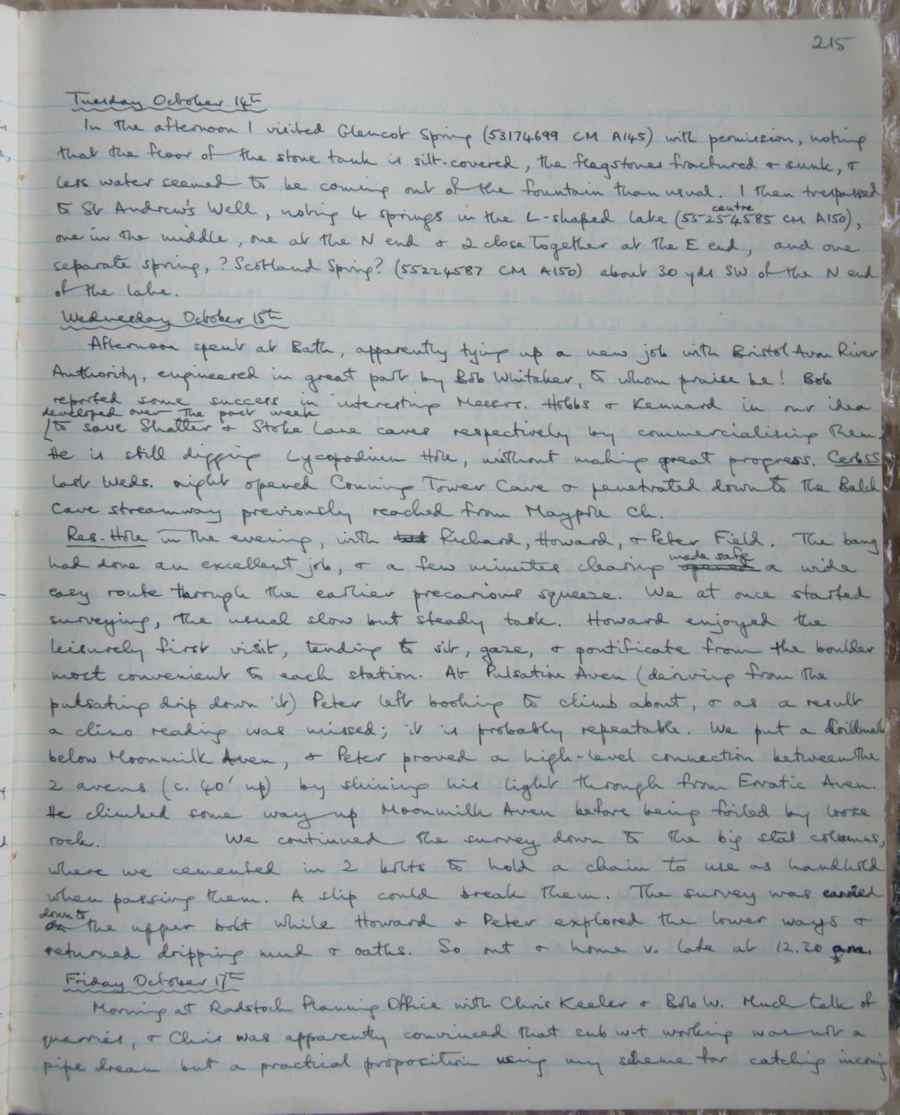 215
Tuesday October 14th
In the afternoon I visited Glencot Spring (53174699 CM A145) with permission, noting
that the floor of the stone tank is silt-covered, the flagstones fractured & sunk, &
less water seemed to be coming out of the fountain than usual. I then trespassed
to St Andrew's Well, noting 4 springs in the L-shaped lake (centre 55254585 CM A150),
one in the middle, one at the N end & 2 close together at the E end, and one
separate spring, ?Scotland Spring? (55224587 CM A150) about 30 yds SW of the N end
of the lake.
Wednesday October 15th
Afternoon spent at Bath, apparently tying up a new job with Bristol Avon River
Authority, engineered in great part by Bob Whitaker, to whom praise be! Bob
reported some success in interesting Messrs. Hobbs & Kennard in our idea
developed over the past week
to save Shatter & Stoke Lane caves respectively by commercialising them.
He is still digging Lycopodium Hole, without making great progress. Cerberus
last Weds. night opened Conning Tower Cave & penetrated down to the Balch
Cave streamway previously reached from Maypole Ch.
Res. Hole in the evening, with Richard, Howard, & Peter Field. The bang
had done an excellent job, & a few minutes clearing made safe opened a wide
easy route through the earlier precarious squeeze. We at once started
surveying, the usual slow but steady task. Howard enjoyed the
leisurely first visit, tending to sit, gaze, & pontificate from the boulder
most convenient to each station. At Pulsation Aven (deriving from the
pulsating drip down it) Peter left booking to climb about, & as a result
a clino reading was missed; it is probably repeatable. We put a drillmark
below Moonmilk Aven, & Peter proved a high-level connection between the
2 avens (c. 40' up) by shining his light through from Erratic Aven.
He climbed some way up Moonmilk Aven before being foiled by loose
rock. We continued the survey down to the big stal columns,
where we cemented in 2 bolts to hold a chain to use as handhold
when passing them. A slip could break them. The survey was carried
down to the upper bolt while Howard & Peter explored the lower ways &
returned dripping mud & oaths. So out & home v. late at 12.20 am.
Friday October 17th
Morning at Radstock Planning Office with Chris Keeler & Bob W. Much talk of
quarries, & Chris was apparently convinced that sub w-t working was not a
pipe dream but a practical proposition using my scheme for catching incoming